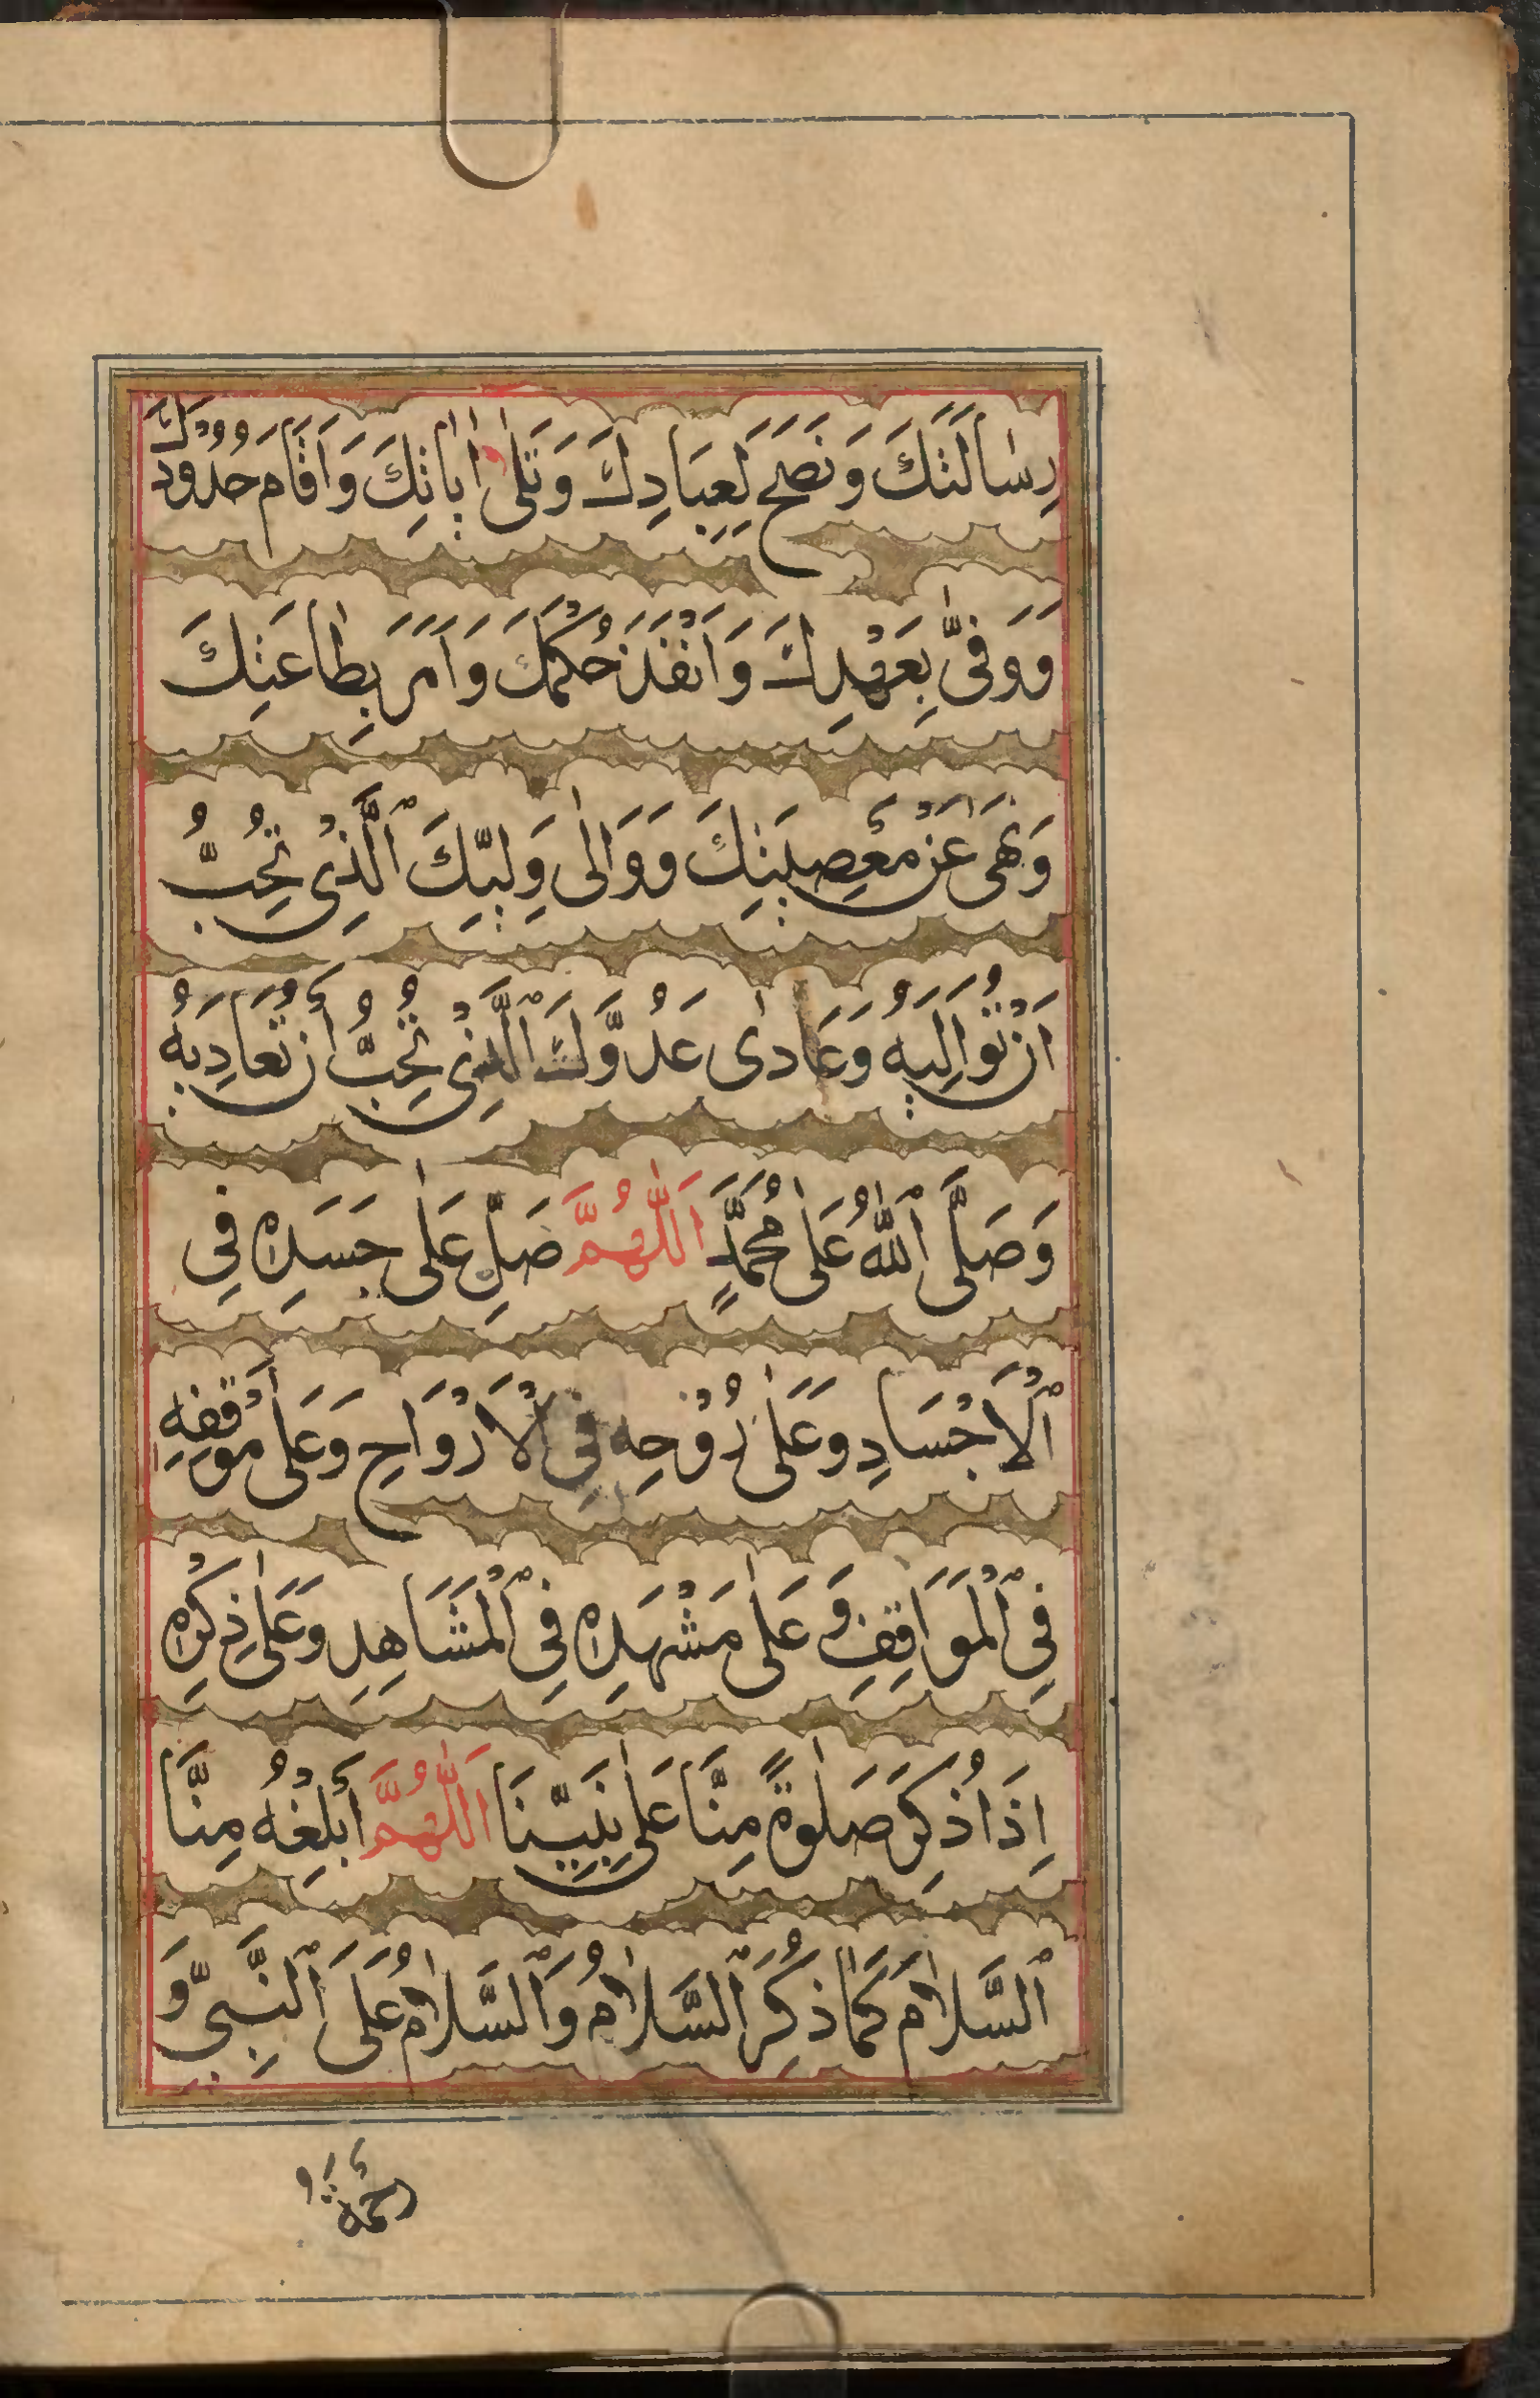 رِسَالَتَكَ وَنَصَحَ لِعِبَادِكَ وَتَلٰى اٰيَاتِكَ وَاَقَامَ حُدُودَكَ
وَوَفّٰى بِعَهْدِكَ وَاَنْفَذَ حُكْمَكَ وَاَمَرَ بِطَاعَتِكَ
وَنَهٰى عَنْ مَعْصِيَتِكَ وَوَالٰى وَلِيَّكَ ٱلَّذِى تُحِبُّ
اَنْ تُوَالِيَهُ وَعَادٰى عَدُوَّكَ ٱلَّذِى تُحِبُّ اَنْ تُعَادِيَهُ
وَصَلَّى ٱللّٰهُ عَلٰى مُحَمَّدٍ اَللّٰهُمَّ صَلِّ عَلٰى جَسَدِهٖ فِى
ٱلْاَجْسَادِ وَعَلٰى رُوْحِهٖ فِى ٱلْاَرْوَاحِ وَعَلٰى مَوْقِفِهٖ
فِى ٱلْمَوَاقِفِ وَعَلٰى مَشْهَدِهٖ فِى ٱلْمَشَاهِدِ وَعَلٰى ذِكْرِهٖ
اِذَا ذُكِرَ صَلٰوةً مِنَّا عَلٰى نَبِيِّنَا اَللّٰهُمَّ اَبْلِغْهُ مِنَّا
ٱلسَّلَامَ كَمَا ذُكِرَ ٱلسَّلَامُ وَٱلسَّلَامُ عَلَى ٱلنَّبِىِّ وَ
رَحْمَةُ